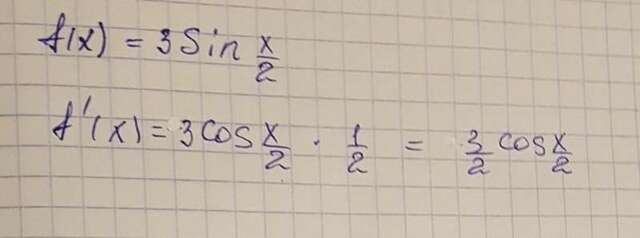 f(x) = 3 Sin x/2
f'(x) = 3 cos x/2 · 1/2 = 3/2 cos x/2